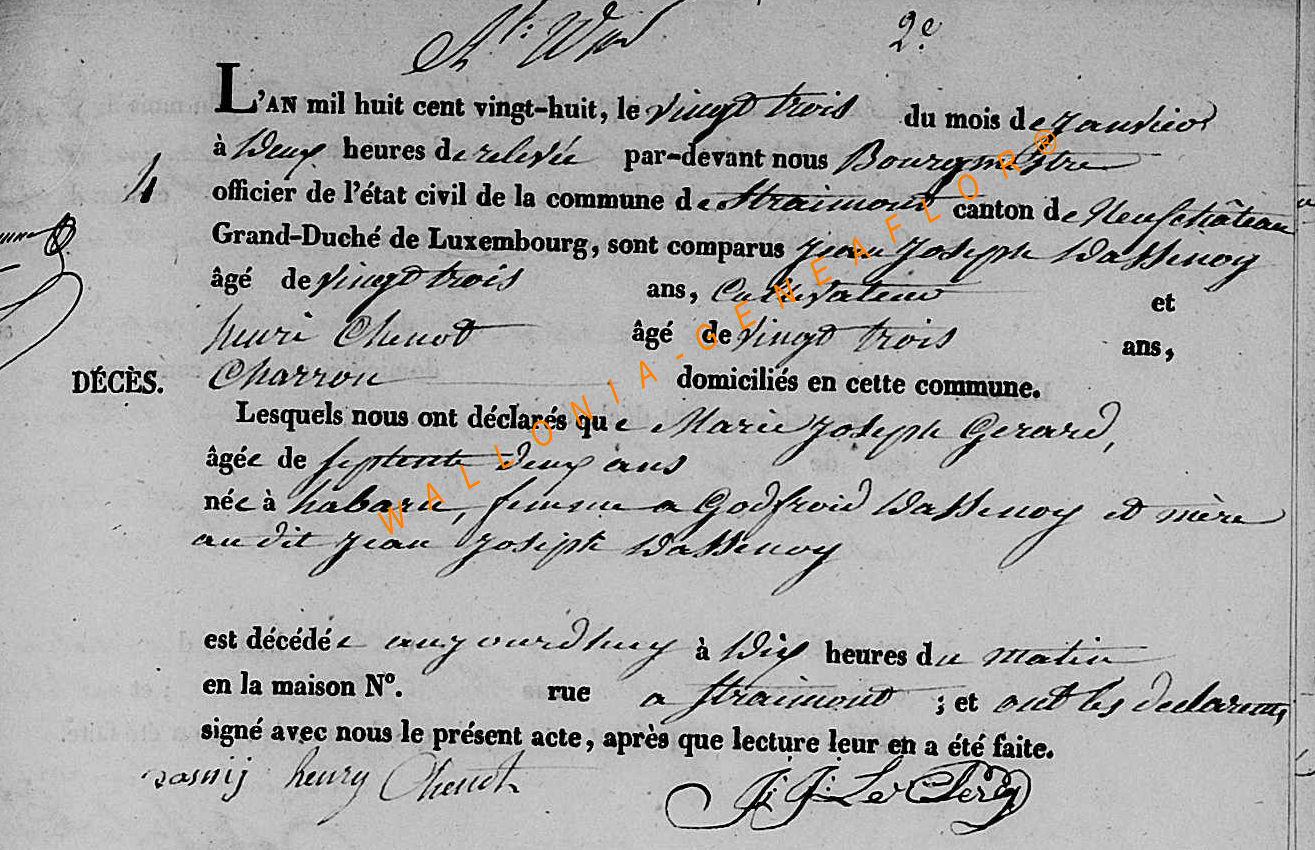 2e
L'AN mil huit cent vingt-huit, le vingt trois du mois de janvier
à deux heures de relevée par-devant nous Bourgmestre
4
officier de l'état civil de la commune de Straimont canton de Neufchâteau
Grand-Duché de Luxembourg, sont comparus jean joseph Wassenoy
âgé de vingt trois ans, Cultivateur et
henri Chenot âgé de vingt trois ans,
DÉCÈS.
Charron domiciliés en cette commune.
Lesquels nous ont déclarés que Marie joseph Gerard,
âgée de septente deux ans
née à habaru, femme a Godfroid Wassenoy et mère
au dit jean joseph Wassenoy
est décédée aujourdhuy à Dix heures du matin
en la maison N°. rue a Straimont ; et ont les declarents
signé avec nous le présent acte, après que lecture leur en a été faite.
henry Chenot J: J: Le Clerq
WALLONIA-GENEAFLOR®